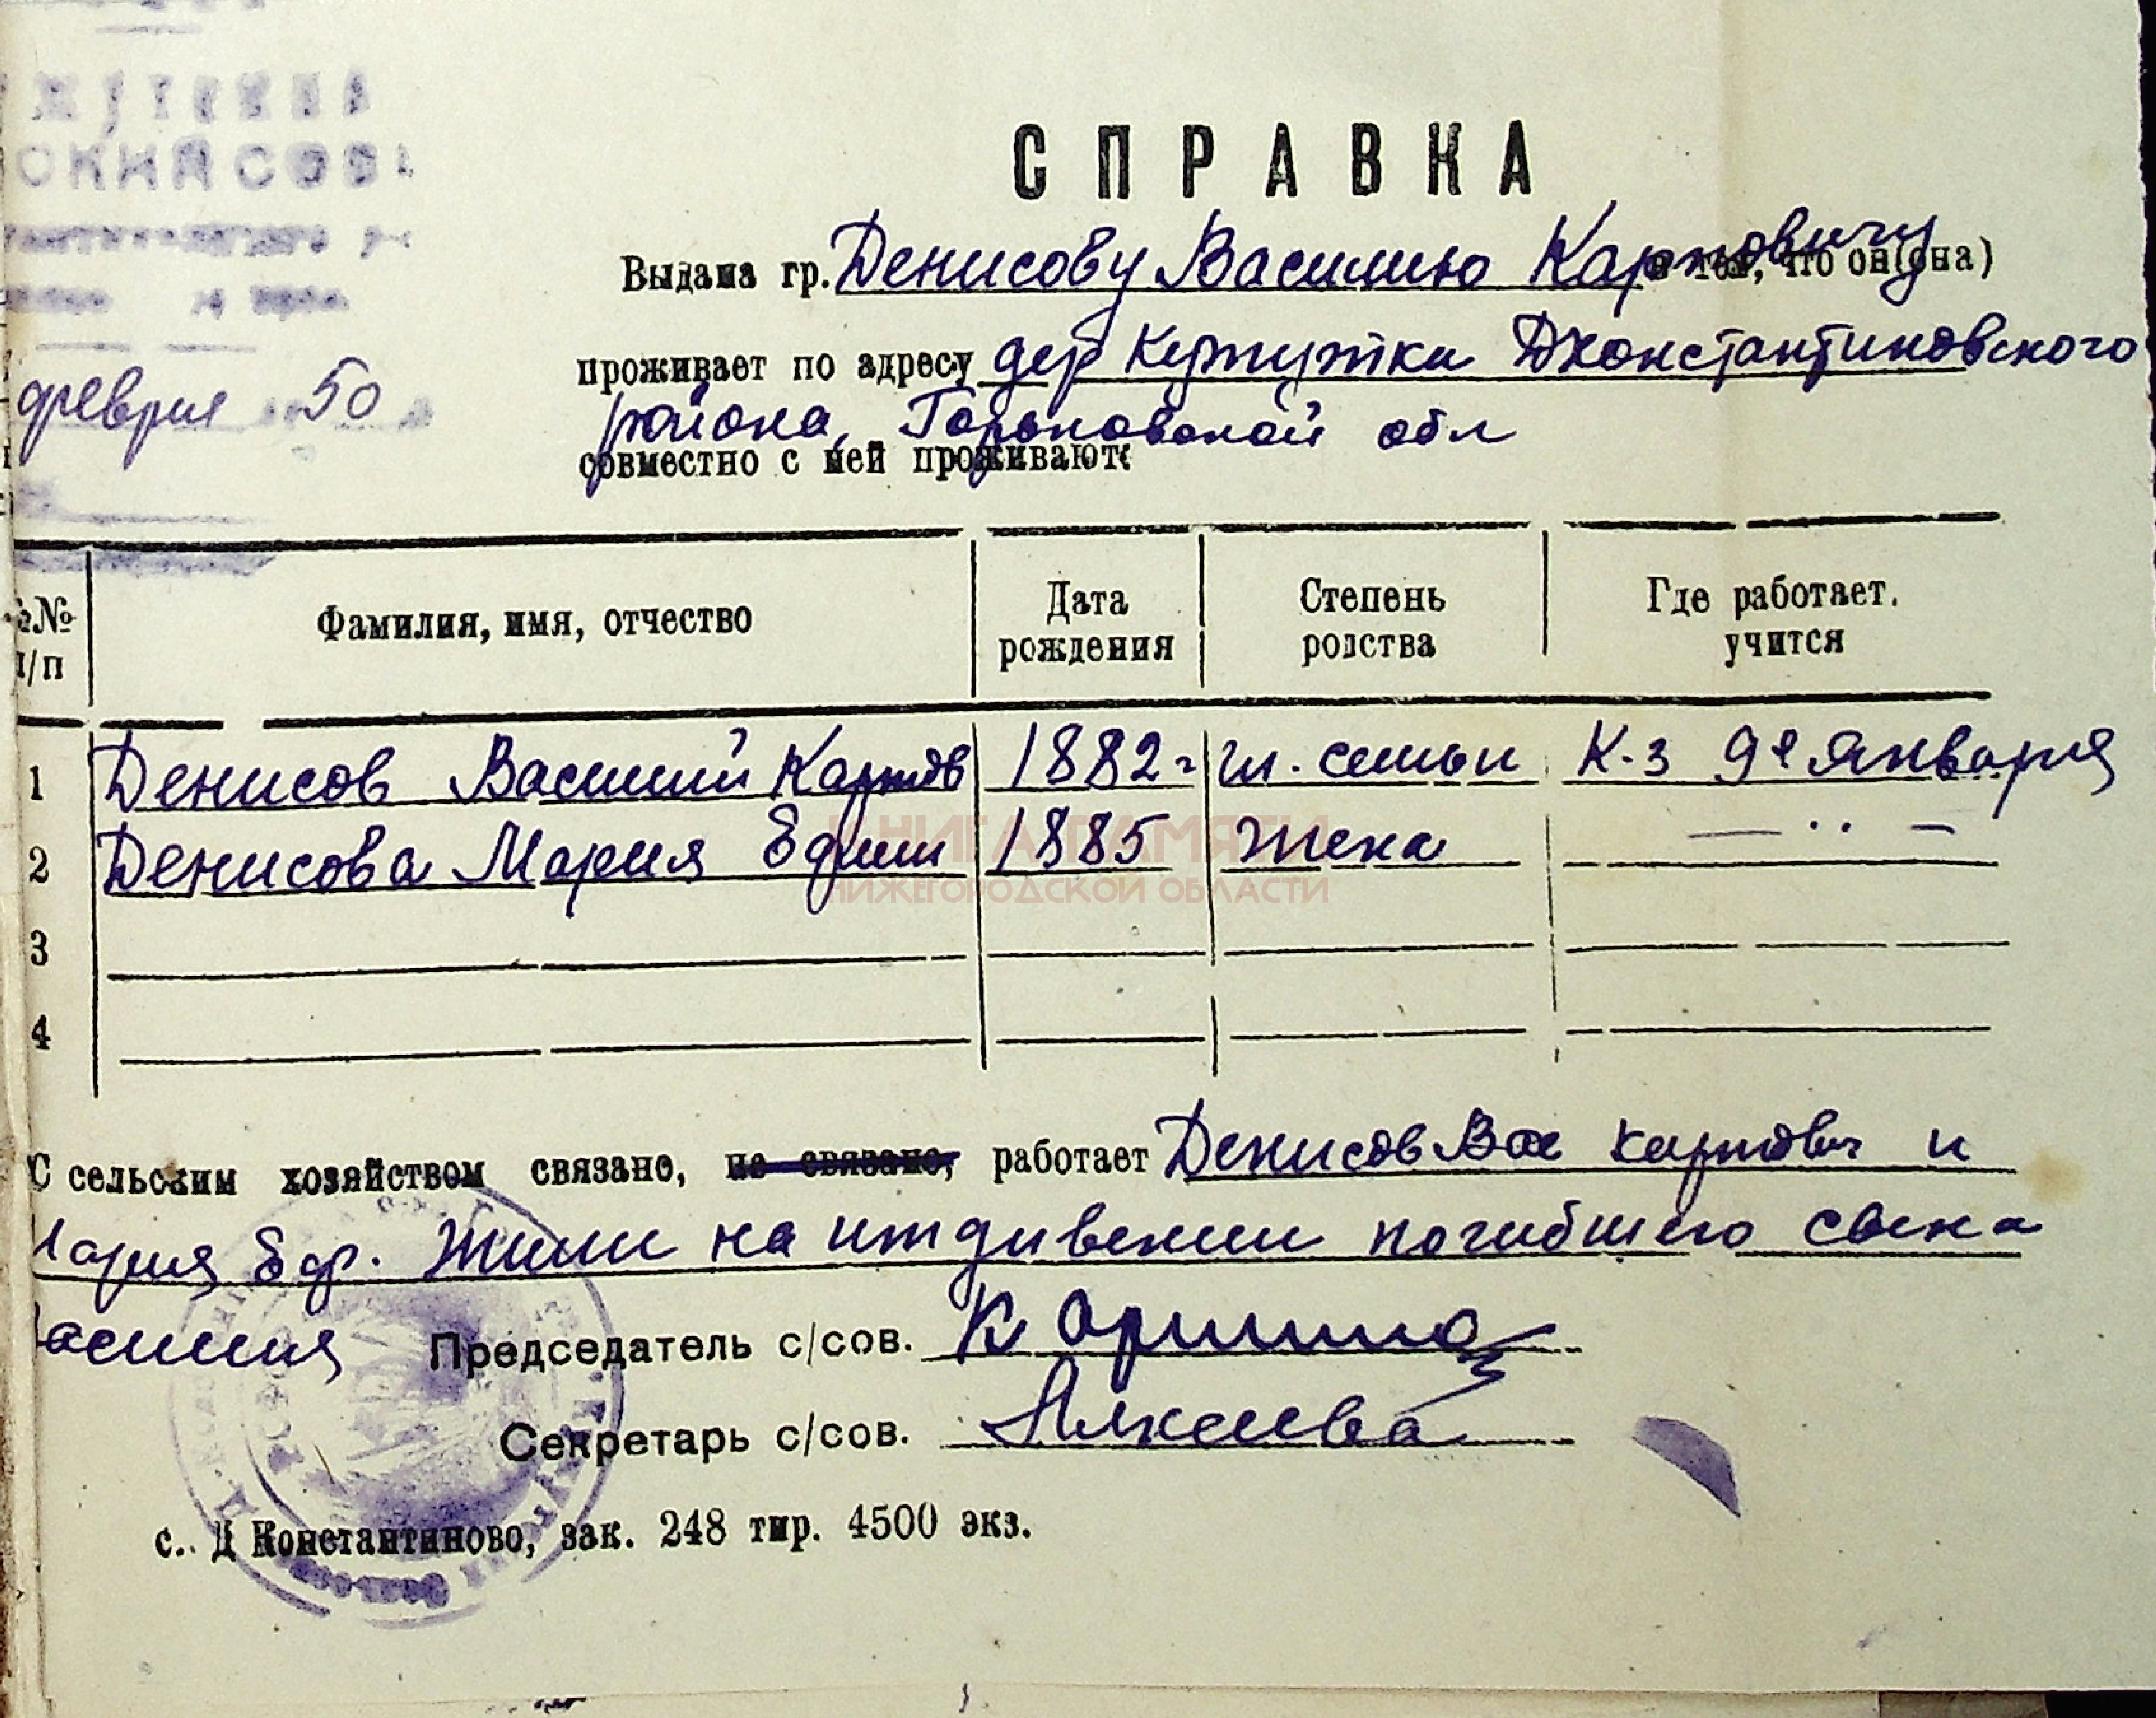 СПРАВКА
Выдана гр. Денисову Василию Карповичу в том, что он(она)
проживает по адресу дер Кержутки Дконстантиновского
района, Горьковской обл
совместно с ней проживают:
февраля 50
№№ п/п Фамилия, имя, отчество Дата рождения Степень родства Где работает, учится
1 Денисов Василий Карпов 1882г гл. семьи К-з 9е Января
2 Денисова Мария Ефим 1885 жена — ·· —
3
4
С сельским хозяйством связано, не связано, работает Денисов Вас карпович и
Мария Еф. Жили на иждивении погибшего сына
Василия
Председатель с/сов.
Секретарь с/сов.
с. Д Константиново, зак. 248 тир. 4500 экз.
КНИГА ПАМЯТИ
НИЖЕГОРОДСКОЙ ОБЛАСТИ